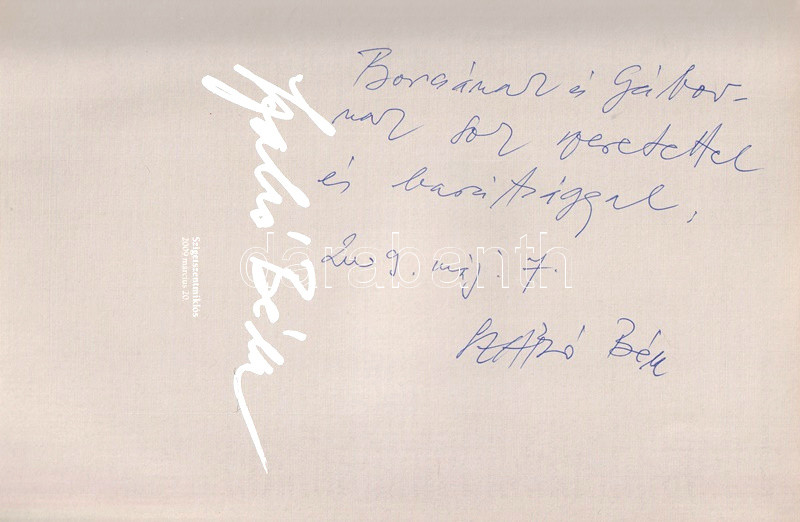 Borcsának és Gábor-
nak sok szeretettel
és barátsággal,
2009. máj. 7.
SZABÓ Béla
Szabó Béla
Szigetszentmiklós
2009 március 20.
darabanth